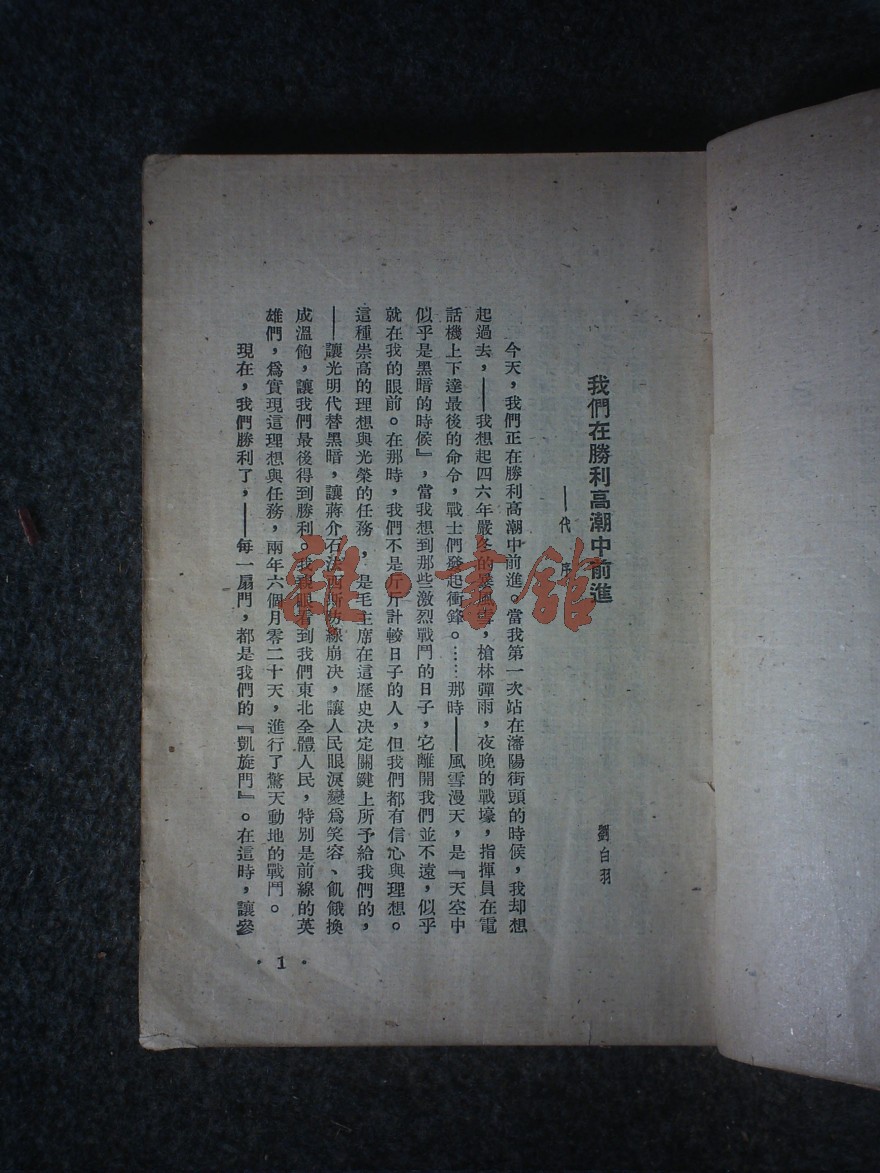 我們在勝利高潮中前進
——代序
劉白羽
今天，我們正在勝利高潮中前進。當我第一次站在瀋陽街頭的時候，我却想
起過去，——我想起四六年嚴冬的暴風雪，槍林彈雨，夜晚的戰壕，指揮員在電
話機上下達最後的命令，戰士們發起衝鋒。……那時——風雪漫天，是『天空中
似乎是黑暗的時候』，當我想到那些激烈戰鬥的日子，它離開我們並不遠，似乎
就在我的眼前。在那時，我們不是斤斤計較日子的人，但我們都有信心與理想。
這種崇高的理想與光榮的任務，是毛主席在這歷史决定關鍵上所予給我們的，
——讓光明代替黑暗，讓蔣介石法西斯防線崩决，讓人民眼淚變爲笑容、飢餓換
成溫飽，讓我們最後得到勝利。我親眼看到我們東北全體人民，特別是前線的英
雄們，爲實現這理想與任務，兩年六個月零二十天，進行了驚天動地的戰鬥。
現在，我們勝利了，——每一扇門，都是我們的『凱旋門』。在這時，讓參
·1·
雜·書館